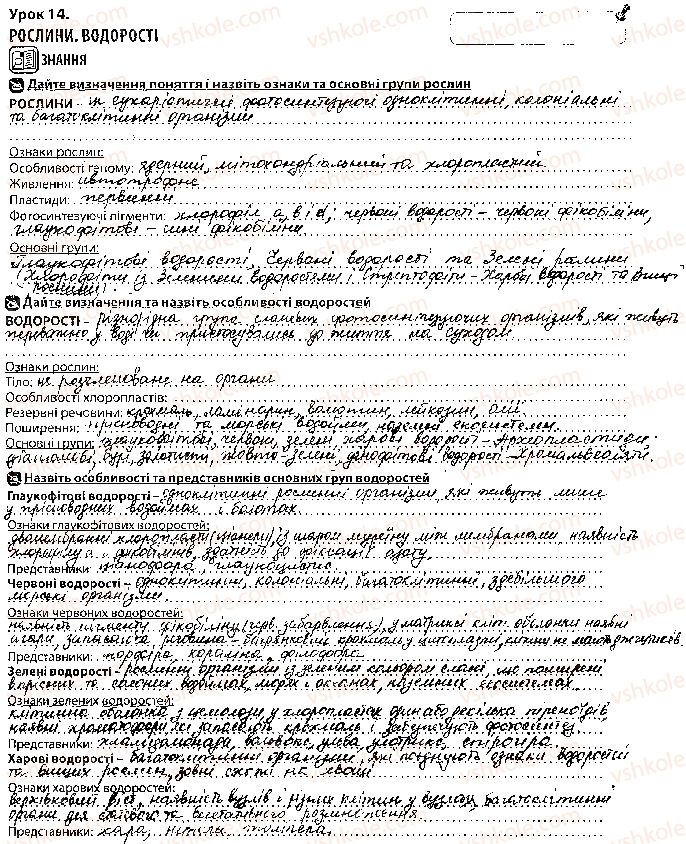 Урок 14.
РОСЛИНИ. ВОДОРОСТІ
ЗНАННЯ
Дайте визначення поняття і назвіть ознаки та основні групи рослин
РОСЛИНИ – це еукаріотичні фотосинтезуючі одноклітинні, колоніальні
та багатоклітинні організми
Ознаки рослин:
Особливості геному: ядерний, мітохондріальний та хлоропластний
Живлення: автотрофне
Пластиди: первинні
Фотосинтезуючі пігменти: хлорофіл а, b і d; червоні водорості – червоні фікобіліни,
глаукофітові – сині фікобіліни.
Основні групи:
Глаукофітові водорості, Червоні водорості та Зелені рослини
(Хлорофіти із Зеленими водоростями і Стрептофіти – Харові водорості та Вищі
рослини).
Дайте визначення та назвіть особливості водоростей
ВОДОРОСТІ – різнорідна група сланевих фотосинтезуючих організмів, які живуть
первинно у воді чи пристосувались до життя на суходолі
Ознаки рослин:
Тіло: не розчленоване на органи
Особливості хлоропластів:
Резервні речовини: крохмаль, ламінарин, волютин, лейкозин, олії
Поширення: прісноводні та морські водойми, наземні екосистеми.
Основні групи: глаукофітові, червоні, зелені харові водорості – Археопластиди;
діатомові, бурі, золотисті, жовто-зелені, динофітові водорості – Хромальвеоляти.
Назвіть особливості та представників основних груп водоростей
Глаукофітові водорості – одноклітинні рослинні організми, які живуть лише
у прісноводних водоймах і болотах.
Ознаки глаукофітових водоростей:
двомембранні хлоропласти (ціанели) із шаром муреїну між мембранами, наявність
хлорофілу а і фікобілінів, здатність до фіксації азоту.
Представники: ціанофора глаукоцистис
Червоні водорості – одноклітинні, колоніальні, багатоклітинні, здебільшого
морські організми.
Ознаки червоних водоростей:
наявність пігменту фікобіліну (черв. забарвлення), у матриксі кліт. оболонки наявні
агари, запасаюча речовина – багрянковий крохмаль у цитоплазмі, клітини не мають джгутиків.
Представники: порфіра кораліна, філофора.
Зелені водорості – рослинні організми із зеленим кольором слані, що поширені
в прісних та солоних водоймах, морях і океанах, наземних екосистемах.
Ознаки зелених водоростей:
клітинна оболонка з целюлози, у хлоропластах один або декілька піреноїдів,
наявні хроматофори, запасають крохмаль і забезпечують фотосинтез
Представники: хламідомонада, вольвокс, ульва, улотрикс, спірогіра.
Харові водорості – багатоклітинні організми, які поєднують ознаки водоростей
та вищих рослин, зовні схожі на хвощі
Ознаки харових водоростей:
верхівковий ріст, наявність вузлів і різних клітин у вузлах, багатоклітинні
органи для статевого та вегетативного розмноження.
Представники: хара, нітела, толіпела.
vshkole.com